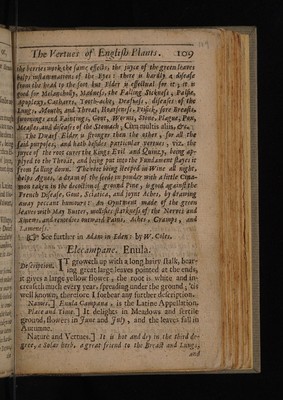 The Vertues of English Plants. 109
the berries work the same effects, the juyce of the green leaves
helps inflammations of the Eyes: there is hardly a disease
from the head to the foot but Elder is effectual for it; it is
good for Melancholy, Madness, the Falling Sickness, Palsie,
Apoplexy, Catharrs, Tooth-ache, Deafness, diseases of the
Lungs, Mouth, and Throat, Hoarseness, Ptisick, sore Breasts,
swoonings and Faintings, Gout, Worms, Stone, Plague, Pox,
Measles, and diseases of the Stomach, Cum multis aliis, &c.
The Dwarf Elder is stronger then the other, for all the
said purposes, and hath besides particular vertues, viz. the
juyce of the root cures the Kings Evil and Quinzy, being ap-
plyed to the Throat, and being put into the Fundament stayes it
from falling down. The root being steeped in Wine all night,
helps Agues, a dram of the seeds in powder with a little Cina-
mon taken in the decoction of ground Pine, is good against the
French Disease, Gout, Sciatica, and joynt Aches, by drawing
away peccant humours: An Oyntment made of the green
leaves with May Butter, mollifies starkness of the Nerves and
Knotts, and remedies outward Pains, Aches, Cramps, and
Lameness.
☞ See further in Adam in Eden: by W. Coles.
Elecampane. Enula.
Description. IT groweth up with a long hairy stalk, bear-
ing great large leaves pointed at the ends,
it gives a large yellow flower, the root is white and in-
creaseth much every year, spreading under the ground; 'tis
well known, therefore I forbear any further description.
Names.] Enula Campana, is the Latine Appellation.
Place and Time.] It delights in Meadows and fertile
ground, flowers in June and July, and the leaves fall in
Autumne.
Nature and Vertues.] It is hot and dry in the third de-
gree, a Solar herb, a great friend to the Breast and Lungs,
and